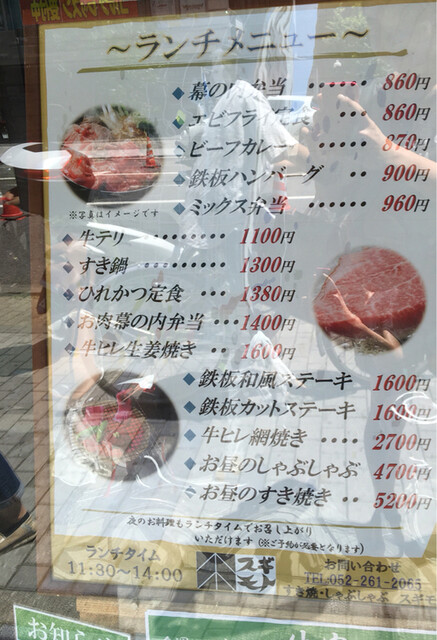 ～ランチメニュー～
◆幕の内弁当 ・・・・・・ 860円
◆エビフライ定食 ・・・ 860円
◆ビーフカレー ・・・・ 870円
◆鉄板ハンバーグ ・・ 900円
◆ミックス弁当 ・・・・ 960円
※写真はイメージです
◆牛テリ ・・・・・・・・ 1100円
◆すき鍋 ・・・・・・・・ 1300円
◆ひれかつ定食 ・・・ 1380円
◆お肉幕の内弁当 ・・ 1400円
◆牛ヒレ生姜焼き ・・ 1600円
◆鉄板和風ステーキ 1600円
◆鉄板カットステーキ 1600円
◆牛ヒレ網焼き ・・・・ 2700円
◆お昼のしゃぶしゃぶ 4700円
◆お昼のすき焼き ・・ 5200円
夜のお料理もランチタイムでお召し上がり
いただけます (※ご予約が必要となります)
ランチタイム
11:30～14:00
スギモト
お問い合わせ
TEL052-261-2065
すき焼・しゃぶしゃぶ スギモ
お知ら